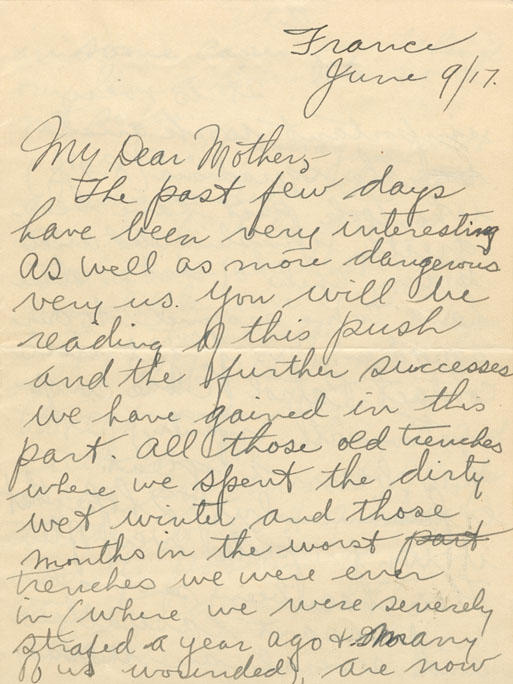 France
June 9/17.
My Dear Mother,
The past few days
have been very interesting
as well as more dangerous
very us. You will be
reading of this push
and the further successes
we have gained in this
part. All those old trenches
where we spent the dirty
wet winter and those
months in the worst part
trenches we were ever
in (where we were severely
strafed a year ago & many
of us wounded), are now